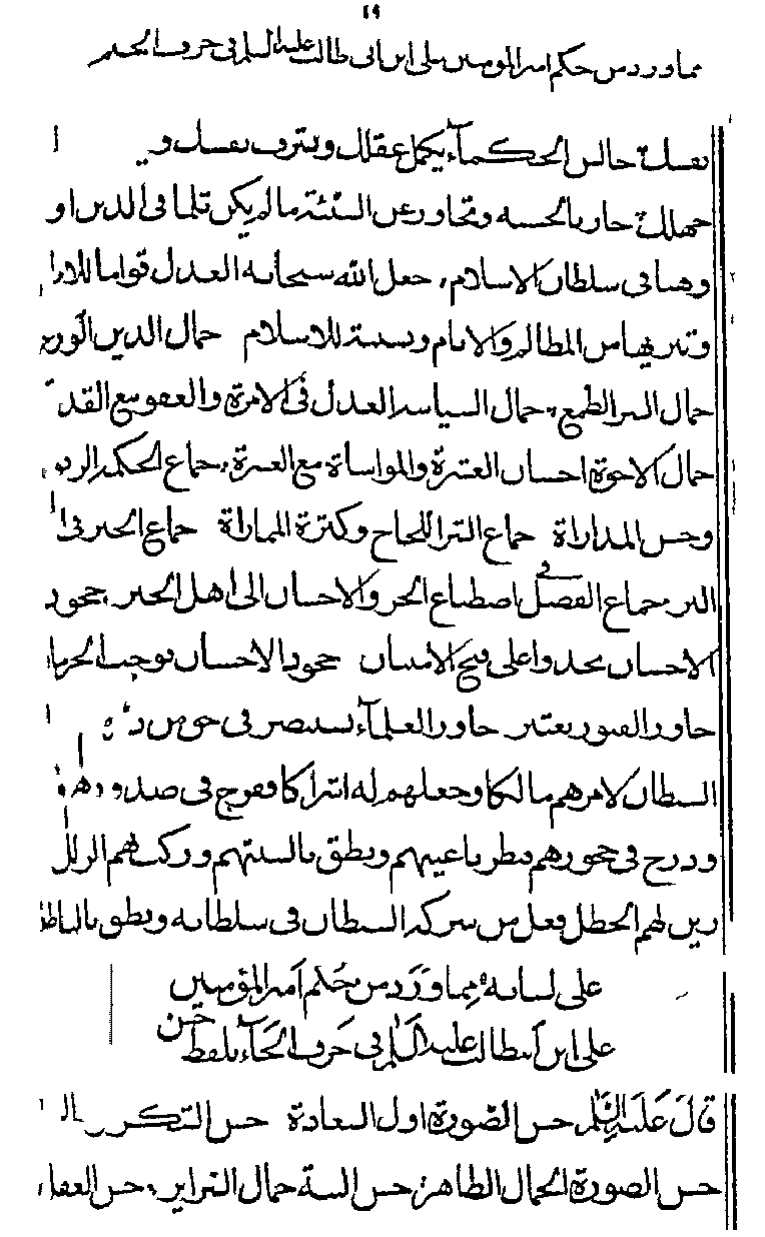 ٤٩
مما ورد من حكم امير المؤمنين على ابن ابى طالب عليه السلام فى حرف الجيم
نفسك جالس الحكماء يكمل عقلك ويشرف نفسك و
جهلك جاز بالحسنه وتجاوز عن السيئة مالم يكن ثلما فى الدين او
وهنا فى سلطان الاسلام جعل الله سبحانه العدل قواما للانا
وتنزيها من المظالم والاثام وتسنية للاسلام جمال الدين الورع
جمال الشر الطمع جمال السياسة العدل فى الامرة والعفو مع القد
جمال الاخوة احسان العشرة والمواساة مع العسرة جماع الحكمة الر
وحسن المداراة جماع الشر اللجاج وكثرة المماراة جماع الخير فى
البر جماع الفضل فى اصطناع الحر والاحسان الى اهل الخير جحود
الاحسان يحدوا على قبح الامتنان جحود الاحسان يوجب الحرما
جاور القبور تعتبر جاور العلماء تستبصر فى
الشيطان لامرهم مالكا وجعلهم له اشراكا ففرخ فى صدورهم
ودرج فى حجورهم فنظر باعينهم ونطق بالسنتهم وركب بهم الزلل
زين لهم الخطل فعل من شركه الشيطان فى سلطانه ونطق بالباطل
على لسانه مما ورد من حكم امير المؤمنين
على ابن ابيطالب عليه السلام فى حرف الحاء بلفظ حسن
قال عليه السلام حسن الصورة اول السعادة حسن
حسن الصورة الجمال الظاهر حسن النية جمال السراير حسن العفا